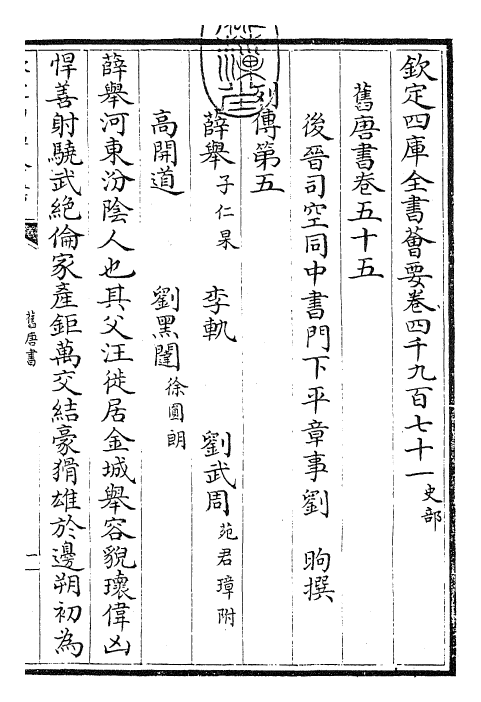 欽定四庫全書薈要卷四千九百七十一 史部
舊唐書卷五十五
後晉司空同中書門下平章事劉 昫撰
列傳第五
薛舉 子仁杲 李軌 劉武周 苑君璋附
高開道 劉黑闥 徐圓朗
薛舉河東汾陰人也其父汪徙居金城舉容貌瓌偉凶
悍善射驍武絶倫家產鉅萬交結豪猾雄於邊朔初為
舊唐書
一